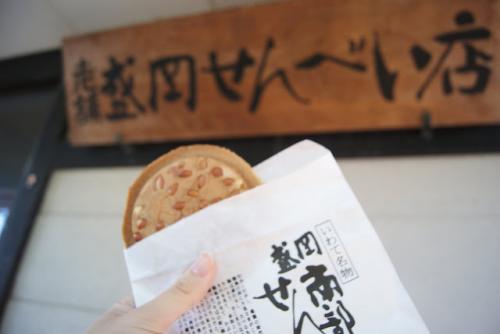 老舗
盛岡せんべい店
いわて名物
盛岡
南部
せん